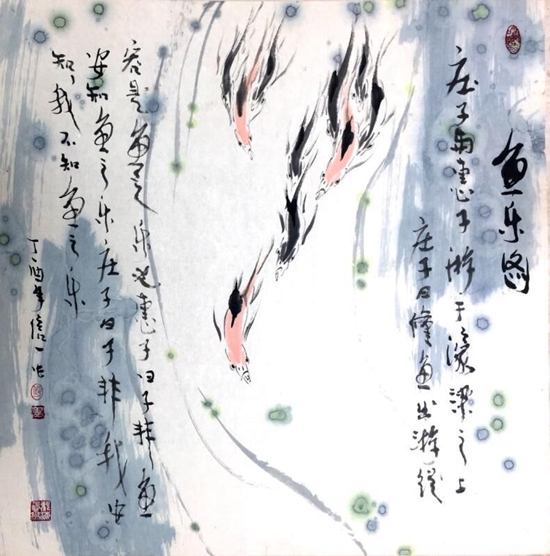 鱼乐图
庄子与惠子游于濠梁之上
庄子曰儵鱼出游从
容是鱼之乐也惠子曰子非鱼
安知鱼之乐庄子曰子非我安
知我不知鱼之乐
丁酉年信一作